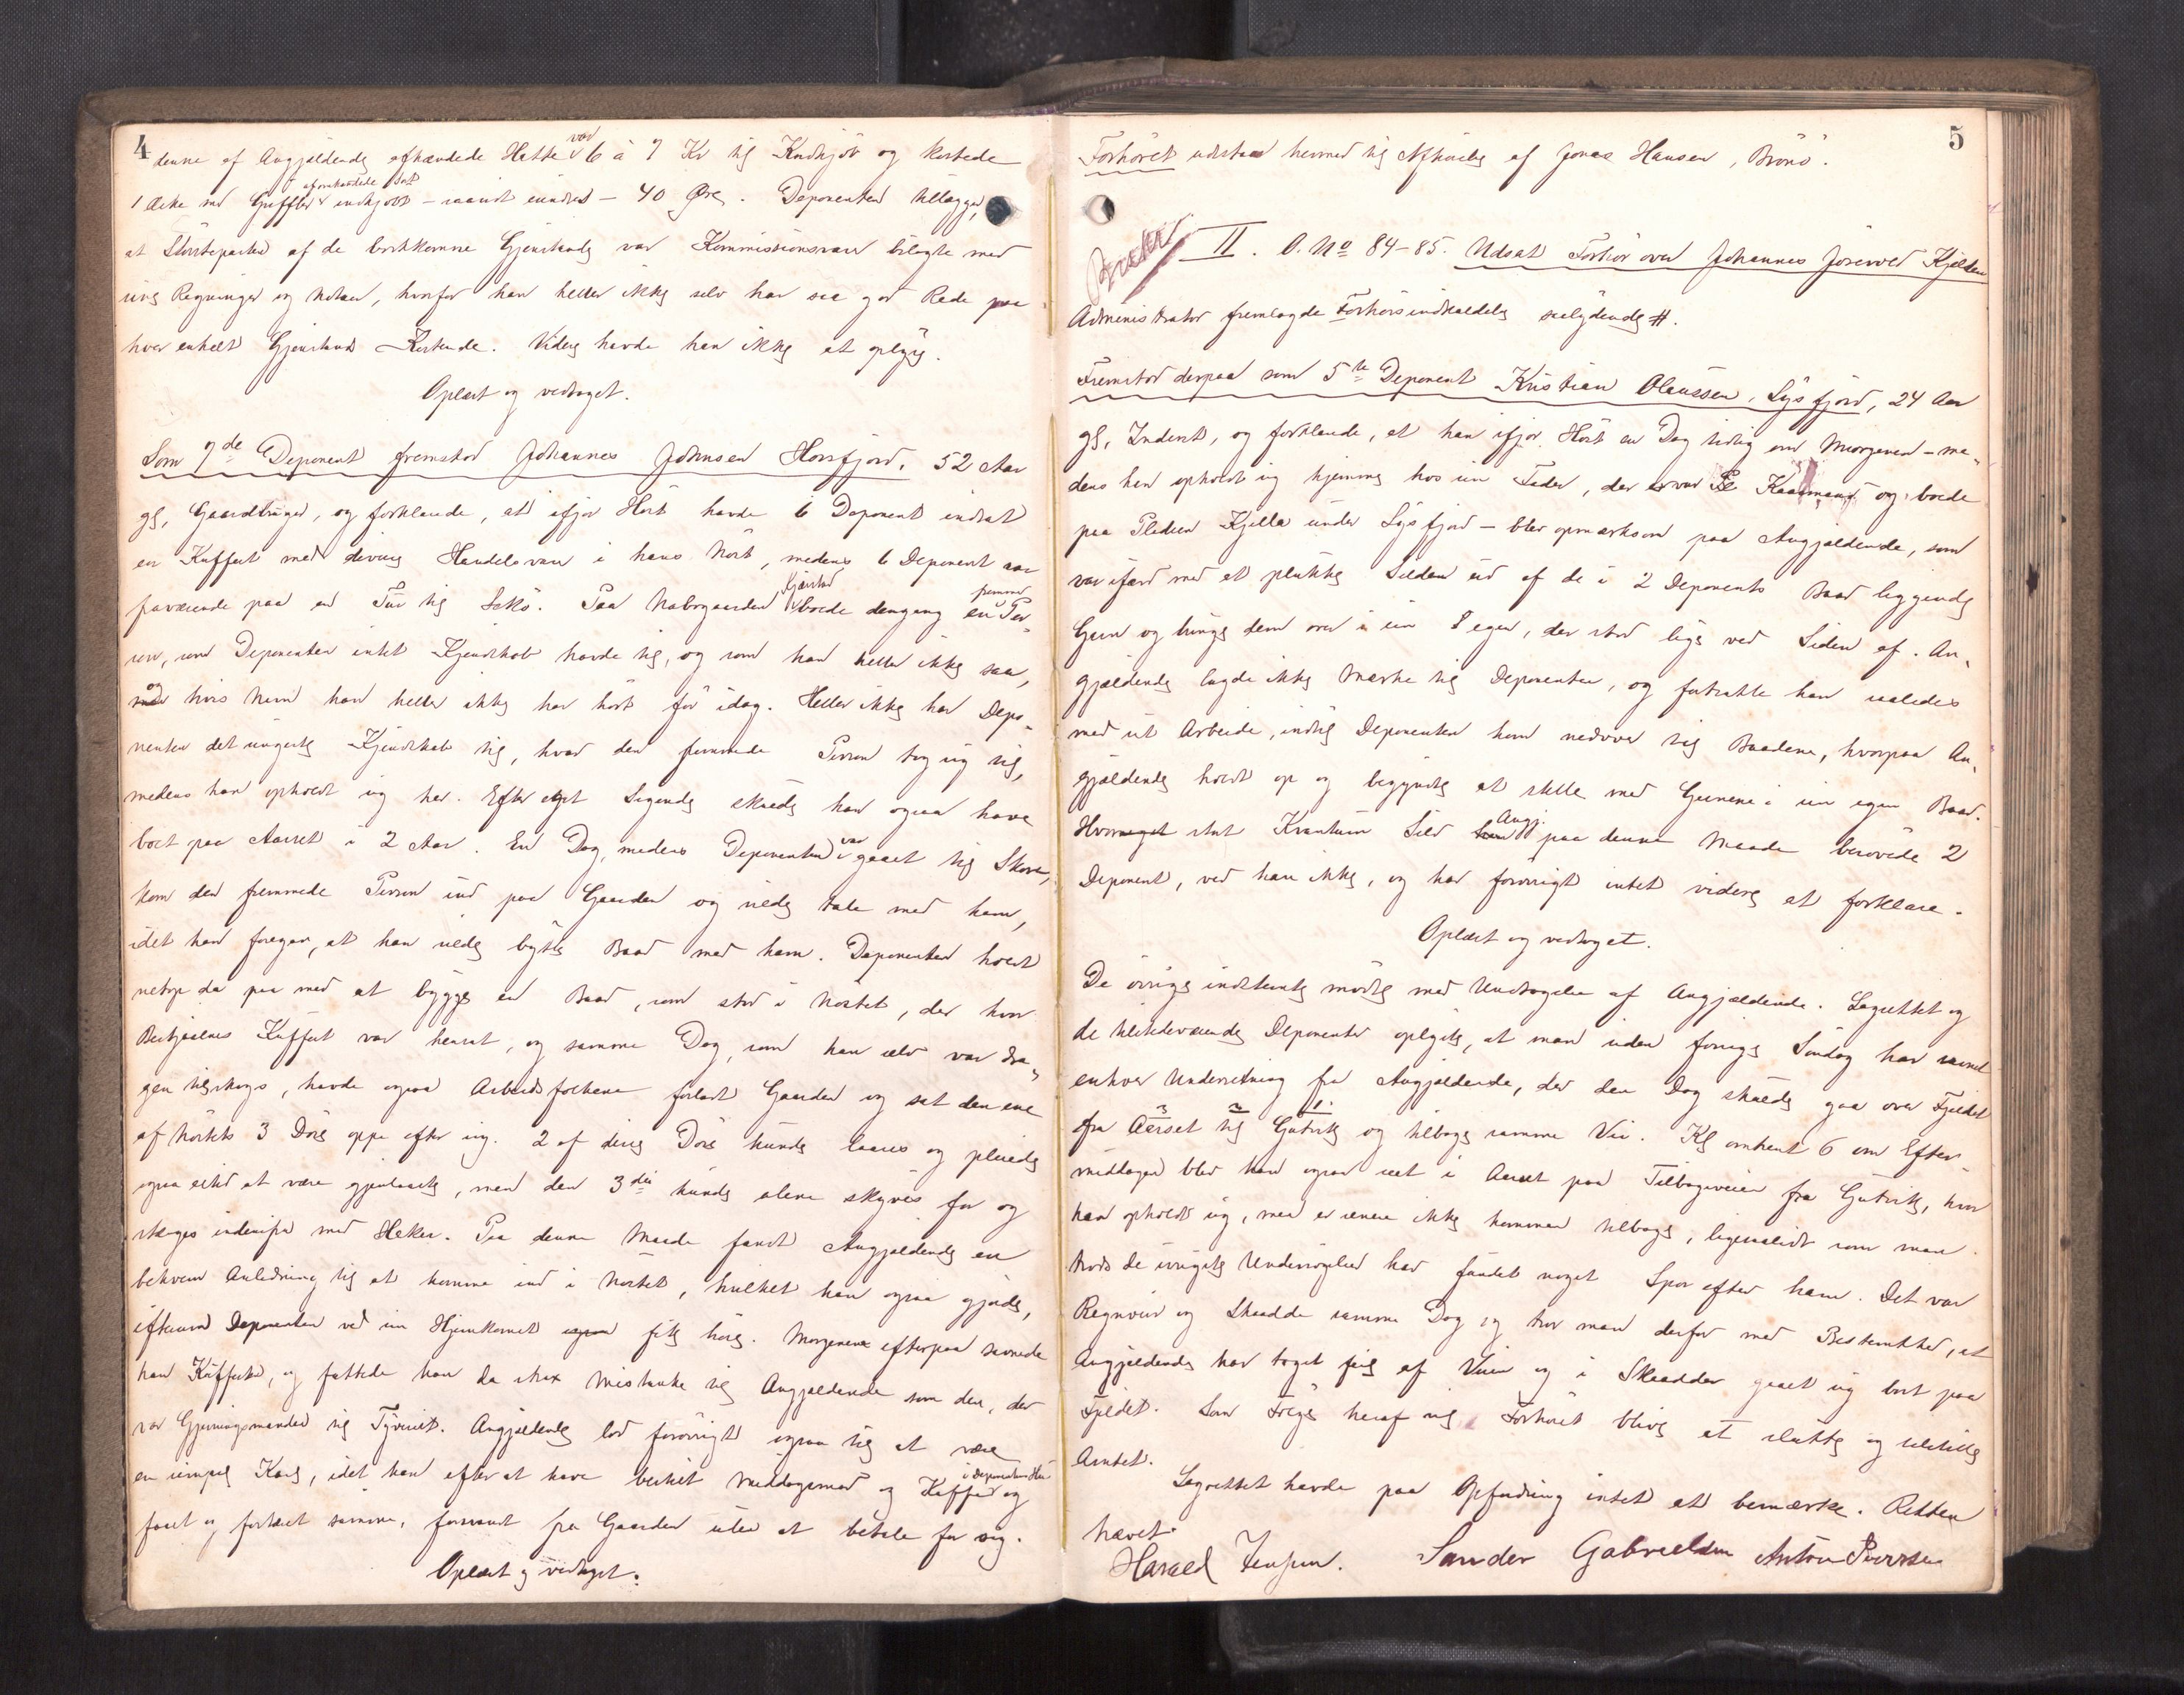 4
denne af Angjældende afhændede Hatte var 6 à 7 Kr til Indkjøb og kostede
1 Æske med Gaffler indkjøbt - 40 Øre. Deponenten tillægger,
at Størsteparten af de bortkomne Gjenstande var Kommissionsvarer bilagte med
Regninger og Notaer, hvorfor han heller ikke selv har saa god Rede paa
hver enkelt Gjenstands Kostende. Videre havde han ikke at oplyse.
Oplæst og vedtaget.
Som 7de Deponent fremstod Johannes Johnsen Horsfjord, 52 Aar
gl, Gaardbruger, og forklarede, at ifjor Høst havde 6 Deponent indsat
en Kuffert med diverse Handelsvarer i hans Nøst, medens 6 Deponent var
fraværende paa en Tur til Lekø. Paa Nabogaarden boede dengang en fremmed Per-
son, som Deponenten intet Kjendskab havde til, og som han heller ikke saa,
og hvis Navn han heller ikke har hørt før idag. Heller ikke har Depo-
nenten det ringeste Kjendskab til, hvad den fremmede Person tog sig til,
medens han opholdt sig her. Efter eget Sigende skulde han ogsaa have
boet paa Aarset i 2 Aar. En Dag, medens Deponenten var gaaet til Skoven,
kom den fremmede Person ind paa Gaarden og vilde tale med ham,
idet han foregav, at han vilde bytte Baad med ham. Deponenten holdt
netop da paa med at bygge en Baad, som stod i Nøstet, der hvor
Kuffert var hensat, og samme Dag, som han selv var dra-
gen tilskogs, havde ogsaa Arbeidsfolkene forladt Gaarden og sat den ene
af Nøstets 3 Døre oppe efter sig. 2 af disse Døre kunde laases og pleiede
ogsaa altid at være gjenlaaste, men den 3die kunde alene skyves for og
stænges indenfra med Heker. Paa denne Maade fandt Angjældende en
bekvem Anledning til at komme ind i Nøstet, hvilket han ogsaa gjorde,
eftersom Deponenten ved sin Hjemkomst fik høre. Morgenen efterpaa savnede
han Kufferten, og fattede han da strax Mistanke til Angjældende som den, der
var Gjerningsmanden til Tyveriet. Angjældende lod forøvrigt ogsaa til at være
en simpel Karl, idet han efter at have bestilt Middagsmad og Kaffe i Deponentens Hus og
faaet og fortæret samme, forsvandt fra Gaarden uden at betale for sig.
Oplæst og vedtaget.
5
Forhøret udstaar hermed til Afhørelse af Jonas Hansen, Brønø.
II. O. No 84-85. Udsat Forhør over Johannes Kjelsen
Administrator fremlagde Forhørsindkaldelse saalydende #.
Fremstod derpaa som 5te Deponent Kristian Olaussen, Lysfjord, 24 Aar
gl, Inderst, og forklarede, at han ifjor Høst en Dag tidlig om Morgenen - me-
dens han opholdt sig hjemme hos sin Fader, der var og boede
paa Pladsen Kjella under Lysfjord - blev opmærksom paa Angjældende, som
var ifærd med at plukke Silden ud af de i 2 Deponents Baad liggende
Garn og bringe dem over i sin egen, der stod lige ved Siden af. An-
gjældende lagde ikke Mærke til Deponenten, og fortsatte han saaledes
med sit Arbeide, indtil Deponenten kom nedover til Baadene, hvorpaa An-
gjældende holdt op og begyndte at stelle med Garnene i sin egen Baad.
Hvor stort Kvantum Sild Angj. paa denne Maade berøvede 2
Deponent, ved han ikke, og har forøvrigt intet videre at forklare.
Oplæst og vedtaget.
De øvrige indstevnte mødte med Undtagelse af Angjældende. Lagrettet og
de tilstedeværende Deponenter oplyste, at man siden forrige Søndag har savnet
enhver Underretning fra Angjældende, der den Dag skulde gaa over Fjeldet
fra Aarset til Gutvik og tilbage samme Vei. Kl omtrent 6 om Efter-
middagen blev han ogsaa seet i Aarset paa Tilbageveien fra Gutvik, hvor
han opholdt sig, men er senere ikke kommen tilbage, ligesaalidt som man
trods de ivrigste Undersøgelser har fundet noget Spor efter ham. Det var
Regnveir og Skaadde samme Dag og tror man derfor med Bestemthed, at
Angjældende har taget feil af Veien og i Skaadden gaaet sig bort paa
Fjeldet. Som Følge heraf vil Forhøret blive at slutte og tilstille
Amtet.
Lagrettet havde paa Opfordring intet at bemærke. Retten
hævet.
Harald Jensen. Sander Gabrielsen Anton Sivertsen